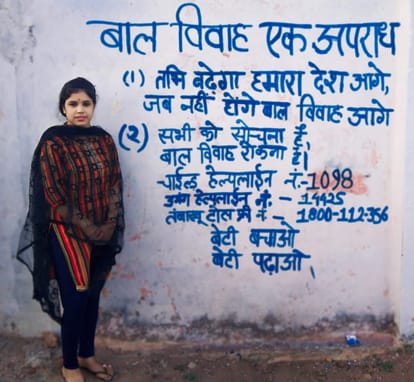 बाल विवाह एक अपराध
(१) तभि बढेगा हमारा देश आगे,
जब नहीं होंगे बाल विवाह आगे
(२) सभी को सोचना है
बाल विवाह रोकना है।
चाईल्ड हेल्पलाईन नं.-1098
हेल्पलाईन नं. - 14425
तंबाखू टोल फ्री नं - 1800-112-356
बेटी बचाओ
बेटी पढाओ.